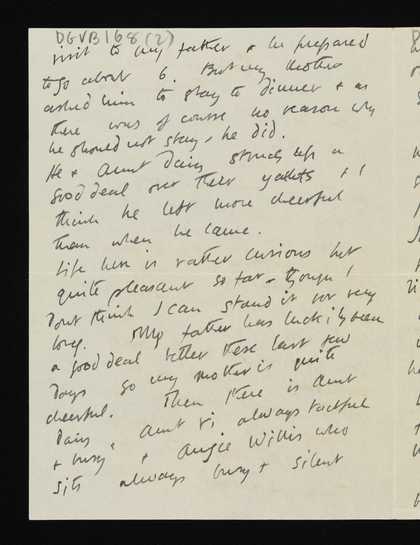 DGVB168(2)
visit to my father & he prepared
to go about 6. But my mother
asked him to stay to dinner & as
there was of course no reason why
he should not stay, he did.
He & Aunt Daisy struck up a
good deal over their & I
think he left more cheerful
than when he came.
Life here is rather curious but
quite pleasant so far - though I
Dont think I can stand it for very
long. My father has luckily been
a good deal better these last few
Days so my mother is quite
cheerful. Then there is Aunt
Daisy, Aunt Vi always tactful
& busy, & Angie Willis who
sits always busy & silent